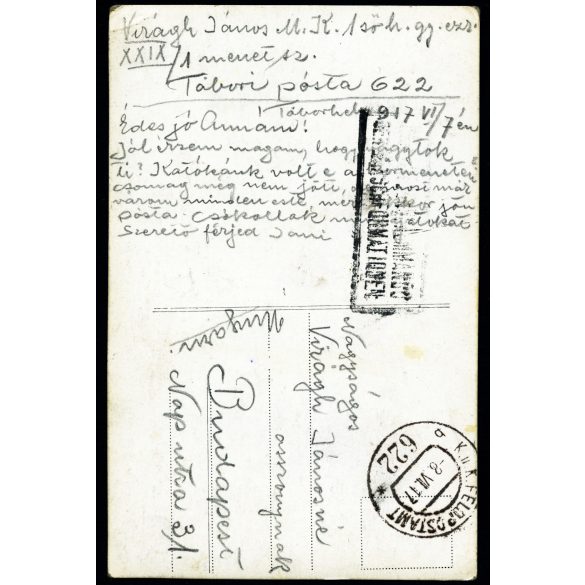 Virágh János M. K. 1 ső h. gy. ezr.
XXIX/1 menet sz.
Tábori pósta 622
Táborhely 917 VI/7 én
Édes jó Annám!
Jól érzem magam, hogy vagytok
ti? Katókánk volt e a
csomag még nem jött, már
várom minden este, mert jön
pósta. Csókollak
Szerető férjed Jani
INFORMATIONEN
Nagyságos
Virágh Jánosné
asszonynak
Budapest
Nap utza 31.
Ungarn.
K.u.K. FELDPOSTAMT
622
-8.VI.17
a